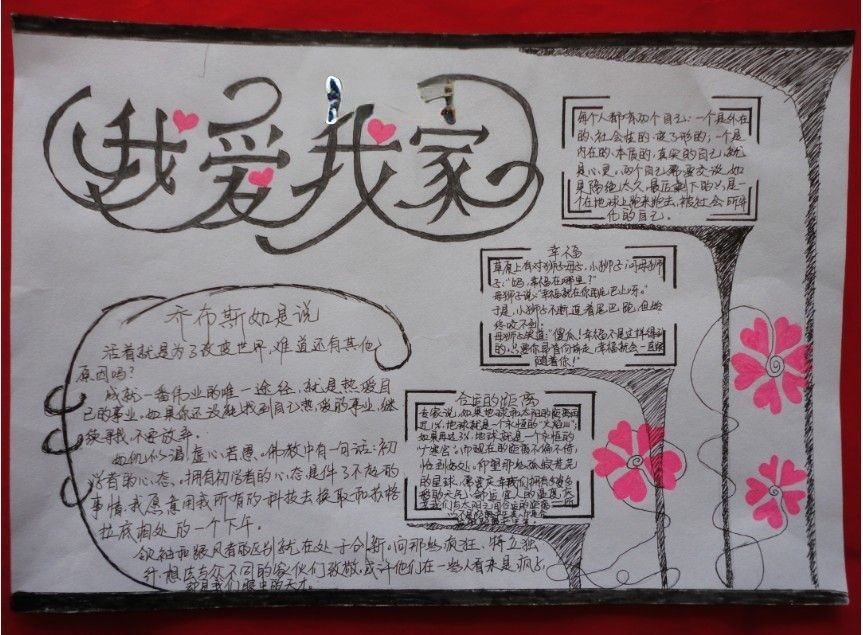 我爱我家
每个人都有两个自己:一个是外在
的、社会性的、变了形的;一个是
内在的、本质的、真实的自己,就
是心灵。两个自己需要交谈,如
果隔绝太久,最后剩下的只是一
个在地球上跑来跑去,被社会所
他的自己。
幸福
草原上有对狮子母子。小狮子问母狮
子:“妈,幸福在哪里?”
母狮子说:“幸福就在你的尾巴上呀。”
于是,小狮子不断追着尾巴跑,但始
终咬不到。
母狮子笑道:“傻瓜!幸福不是这样得到
的!只要你昂首向前走,幸福就会一直
随着你!”
合适的距离
专家说,如果地球和太阳的距离再
近1%,地球就是一个永恒的“火焰山”;
如果再远3%,地球就是一个永恒的
“广寒宫”。而现在的距离不偏不倚,
恰到好处。仰望那些孤寂荒芜
的星球,
齐布斯如是说
活着就是为了改变世界,难道还有其他
原因吗?
成就一番伟业的唯一途径,就是热爱自
己的事业。如果你还没能找到自己热爱的事业,继
续寻找,不要放弃。
求知若渴,虚心若愚。佛教中有一句话:初
学者的心态。拥有初学者的心态是件了不起的
事情。我愿意用我所有的科技去换取和苏格
拉底相处的一个下午。
领袖和跟风者的区别就在处于创新。向那些疯狂、特立独
行、想法与众不同的家伙们致敬,或许他们在一些人看来是疯子,
却是我们眼中的天才。